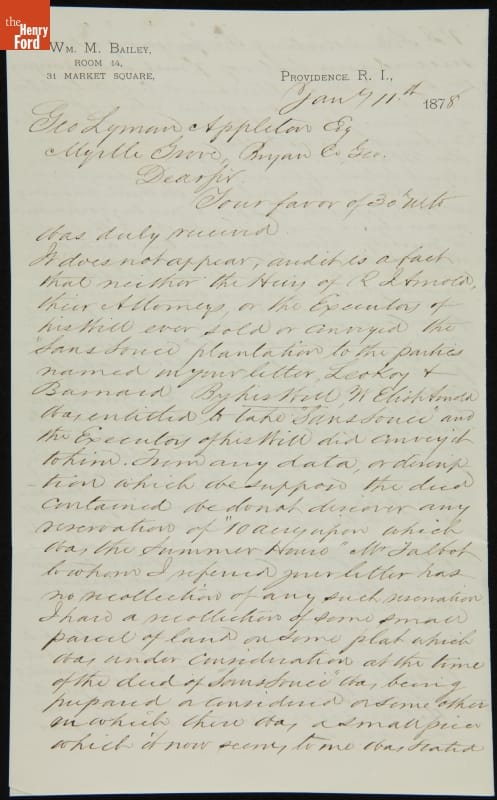 the
Henry
Ford
Wm. M. Bailey,
Room 14,
31 Market Square,
Providence, R. I.,
Jany 11th 1878
Geo Lyman Appleton Esq
Myrtle Grove, Bryan Co Geo.
Dear Sir
Your favor of 30th ulto
was duly received
It does not appear, and it is a fact
that neither the Heirs of R J Arnold,
their Attorneys, or the Executors of
his Will ever sold or conveyed the
"Sans Souci" plantation to the parties
named in your letter, LeRoy &
Barnard By his Will W Eliot Arnold
was entitled to take "Sans Souci" and
the Executors of his Will did convey it
to him. From any data, or descrip
tion which we suppose the deed
contained we do not discover any
reservation of "10 acres upon which
was the Summer House" Mr Talbot
to whom I referred your letter has
no recollection of any such reservation
I have a recollection of some small
parcel of land on some plat which
was under consideration at the time
of the deed of Sans Souci" was being
prepared, or considered or some other
in which there was a small piece
which it now seems to me was stated